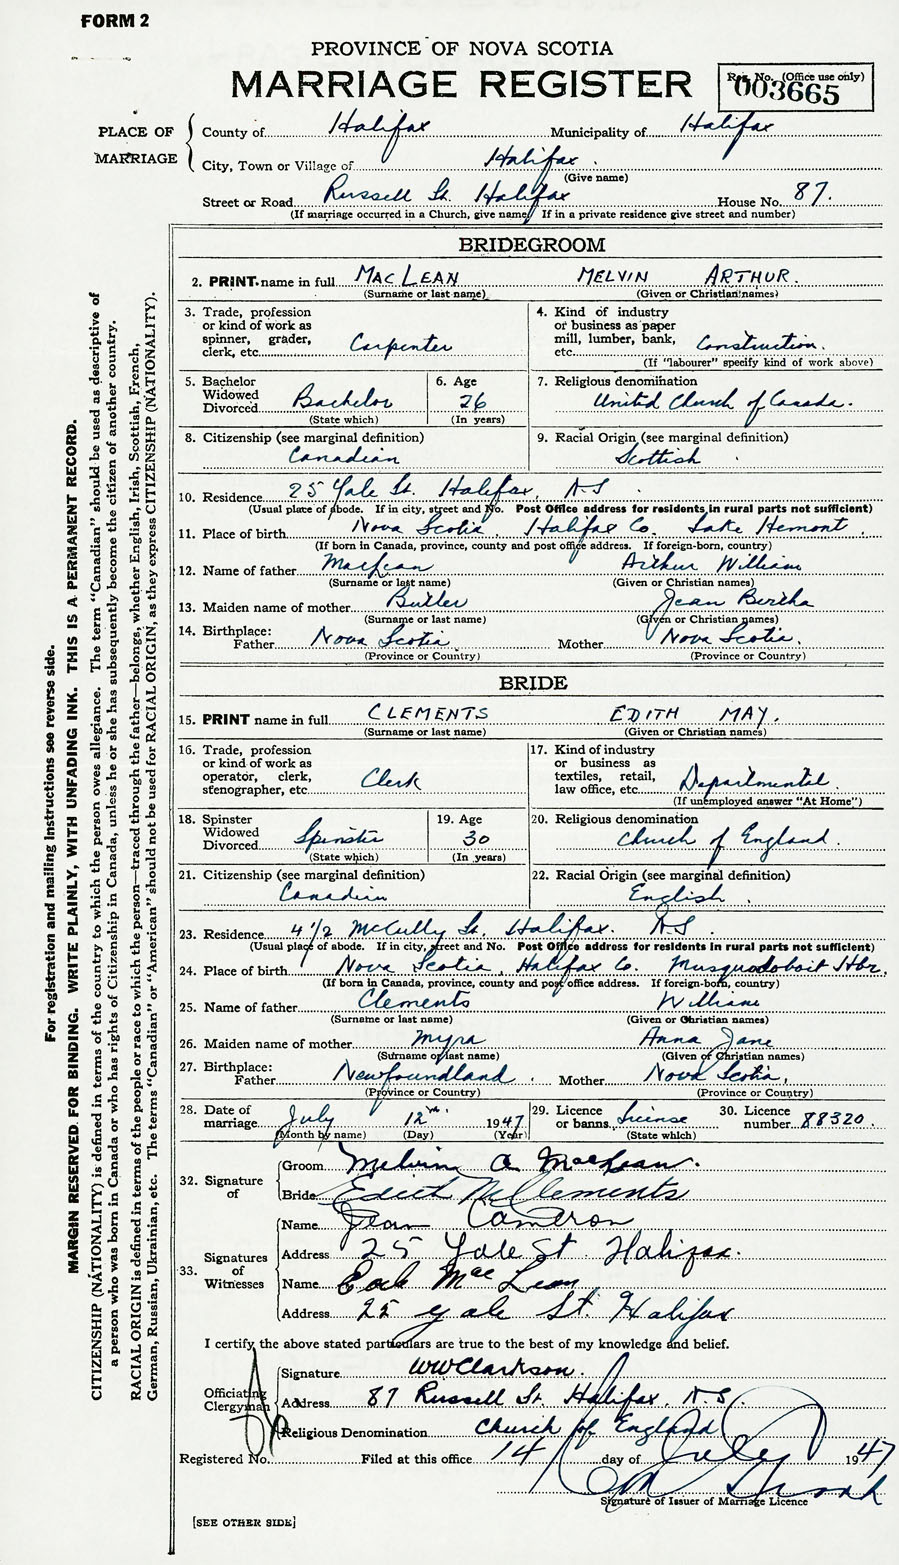 FORM 2
PROVINCE OF NOVA SCOTIA
MARRIAGE REGISTER
Reg. No. (Office use only)
003665
PLACE OF MARRIAGE
County of Halifax Municipality of Halifax
City, Town or Village of Halifax.
(Give name)
Street or Road Russell St. Halifax House No. 87.
(If marriage occurred in a Church, give name. If in a private residence give street and number)
BRIDEGROOM
2. PRINT name in full MACLEAN MELVIN ARTHUR.
(Surname or last name) (Given or Christian names)
3. Trade, profession or kind of work as spinner, grader, clerk, etc. Carpenter
4. Kind of industry or business as paper mill, lumber, bank, etc. Construction.
(If "labourer" specify kind of work above)
5. Bachelor Widowed Divorced Bachelor
(State which)
6. Age 26
(In years)
7. Religious denomination
United Church of Canada.
8. Citizenship (see marginal definition)
Canadian
9. Racial Origin (see marginal definition)
Scottish
10. Residence 25 Yale St. Halifax, N.S.
(Usual place of abode. If in city, street and No. Post Office address for residents in rural parts not sufficient)
11. Place of birth Nova Scotia, Halifax Co. Lake
(If born in Canada, province, county and post office address. If foreign-born, country)
12. Name of father MacLean Arthur William
(Surname or last name) (Given or Christian names)
13. Maiden name of mother Butler Jean Bertha
(Surname or last name) (Given or Christian names)
14. Birthplace: Father Nova Scotia Mother Nova Scotia.
(Province or Country) (Province or Country)
BRIDE
15. PRINT name in full CLEMENTS EDITH MAY.
(Surname or last name) (Given or Christian names)
16. Trade, profession or kind of work as operator, clerk, stenographer, etc. Clerk
17. Kind of industry or business as textiles, retail, law office, etc. Departmental
(If unemployed answer "At Home")
18. Spinster Widowed Divorced Spinster
(State which)
19. Age 30
(In years)
20. Religious denomination
Church of England.
21. Citizenship (see marginal definition)
Canadian
22. Racial Origin (see marginal definition)
English.
23. Residence 4 1/2 McCully St. Halifax. N.S.
(Usual place of abode. If in city, street and No. Post Office address for residents in rural parts not sufficient)
24. Place of birth Nova Scotia, Halifax Co. Musquodoboit Hbr.
(If born in Canada, province, county and post office address. If foreign-born, country)
25. Name of father Clements William
(Surname or last name) (Given or Christian names)
26. Maiden name of mother Myra Anna Jane
(Surname or last name) (Given or Christian names)
27. Birthplace: Father Newfoundland. Mother Nova Scotia,
(Province or Country) (Province or Country)
28. Date of marriage July 12th 1947
(Month by name) (Day) (Year)
29. Licence or banns License
(State which)
30. Licence number 88320.
32. Signature of
Groom Melvin A MacLean.
Bride Edith M Clements
33. Signatures of Witnesses
Name Jean Cameron
Address 25 Yale St. Halifax.
Name Mac Lean
Address 25 Yale St. Halifax
I certify the above stated particulars are true to the best of my knowledge and belief.
Officiating Clergyman
Signature WWClarkson.
Address 87 Russell St. Halifax, N.S.
Religious Denomination Church of England
Registered No. Filed at this office 14 day of July 1947
Signature of Issuer of Marriage Licence
[SEE OTHER SIDE]
For registration and mailing instructions see reverse side.
MARGIN RESERVED FOR BINDING. WRITE PLAINLY, WITH UNFADING INK. THIS IS A PERMANENT RECORD.
CITIZENSHIP (NATIONALITY) is defined in terms of the country to which the person owes allegiance. The term "Canadian" should be used as descriptive of
a person who was born in Canada or who has rights of Citizenship in Canada, unless he or she has subsequently become the citizen of another country.
RACIAL ORIGIN is defined in terms of the people or race to which the person—traced through the father—belongs, whether English, Irish, Scottish, French,
German, Russian, Ukrainian, etc. The terms "Canadian" or "American" should not be used for RACIAL ORIGIN, as they express CITIZENSHIP (NATIONALITY).